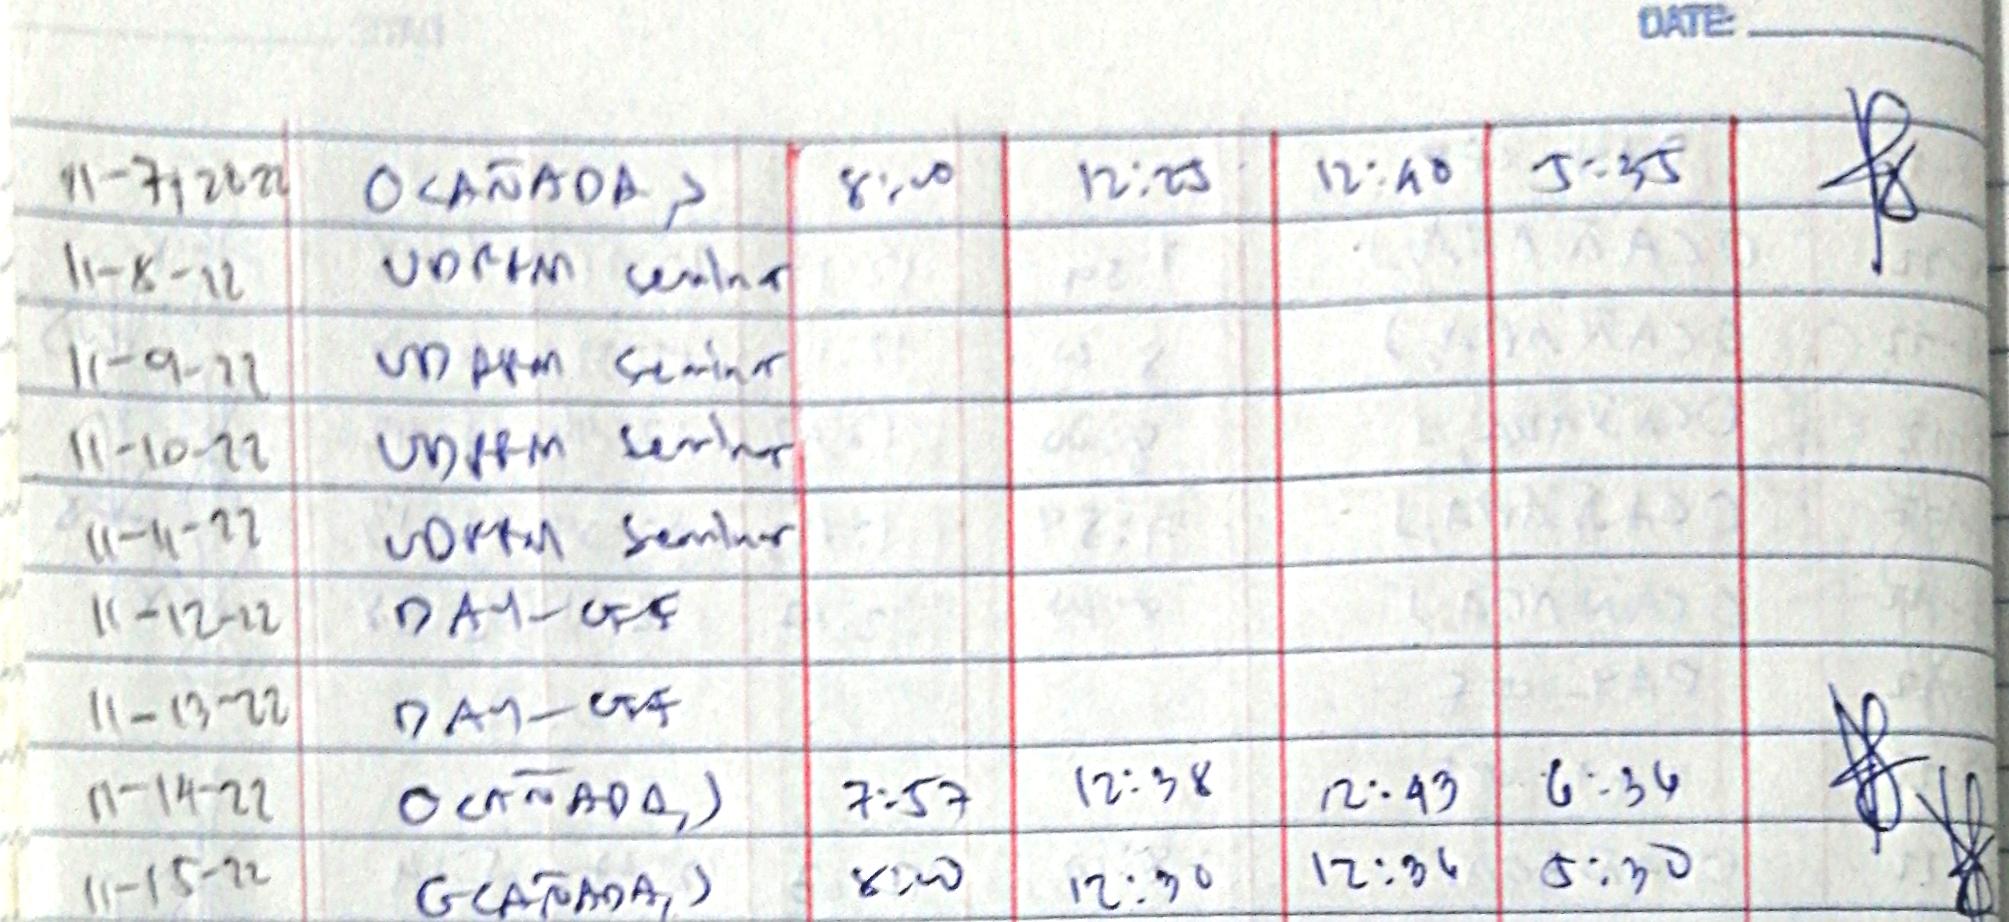 DATE:
11-7, 2022 OCAÑADA, J 8:00 12:25 12:40 5:35
11-8-22 seminar
11-9-22 seminar
11-10-22 seminar
11-11-22 seminar
11-12-22 DAY-OFF
11-13-22 DAY-OFF
11-14-22 OCAÑADA, J 7:57 12:38 12:43 6:36
11-15-22 OCAÑADA, J 8:00 12:30 12:36 5:30